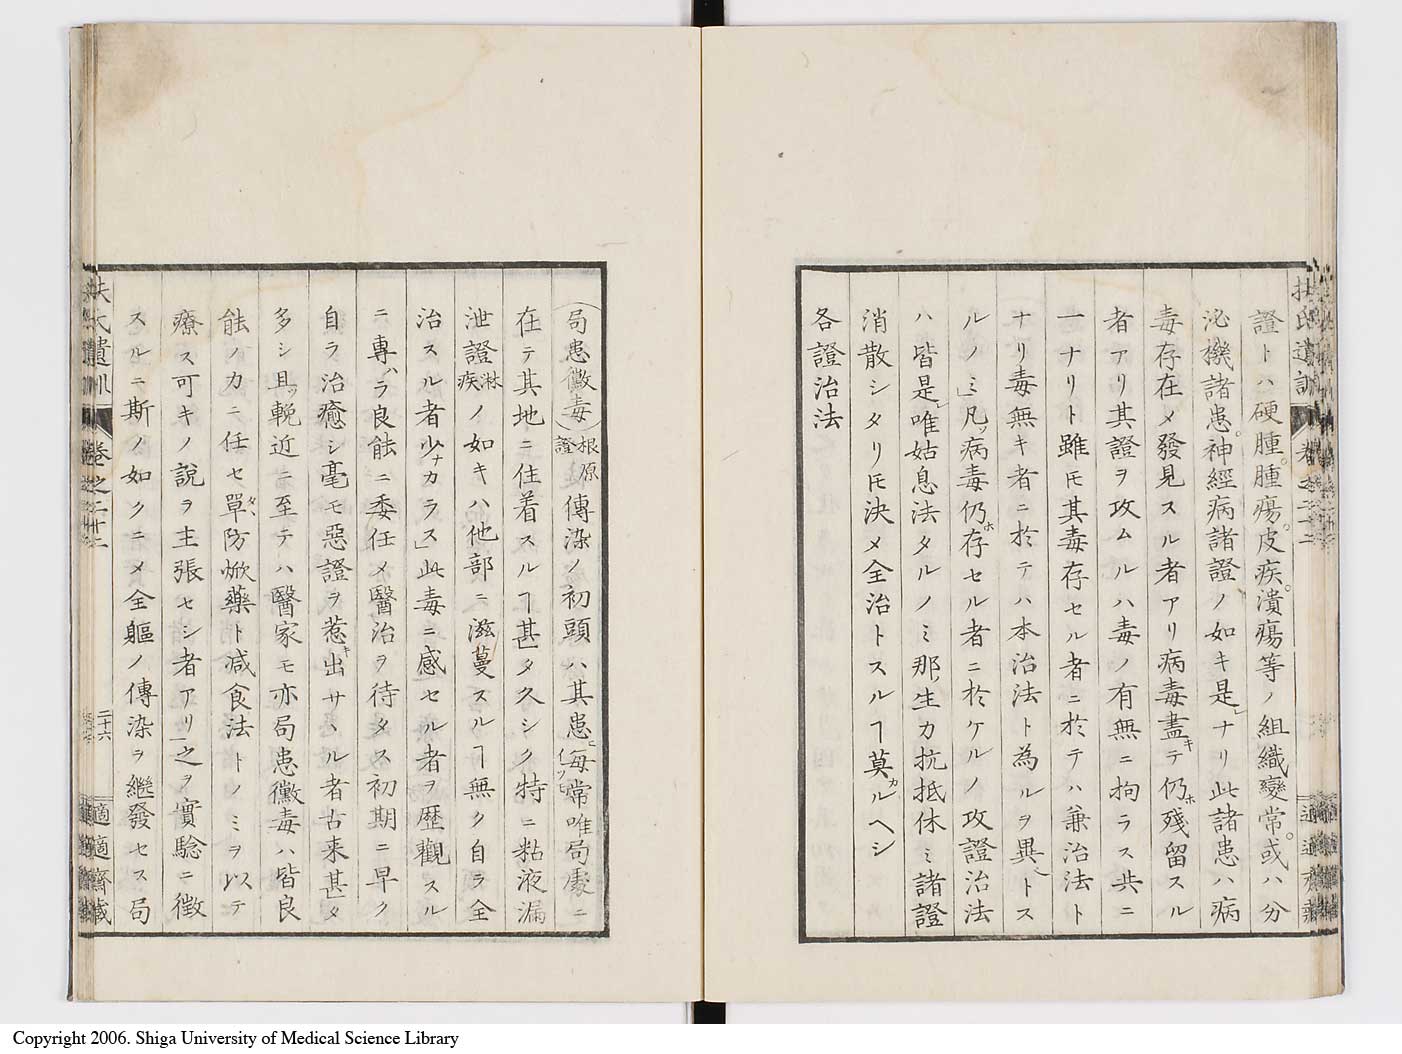 證トハ硬腫。腫瘍。皮疾。潰瘍等ノ組織變常。或ハ分
泌機諸患。神經病諸證ノ如キ是」ナリ此諸患ハ病
毒存在メ發見スル者アリ病毒盡キテ仍ホ殘留スル
者アリ其證ヲ攻ムルハ毒ノ有無ニ拘ラス共ニ
一ナリト雖𪜈其毒存セル者ニ於テハ兼治法ト
ナリ毒無キ者ニ於テハ本治法ト為ルヲ異ヘトス
ルノミ」凡ソ病毒仍ホ存セル者ニ於ケルノ攻證治法
ハ皆是レ唯姑息法タルノミ那ノ生力抗抵休ミ諸證
消散シタリ𪜈決メ全治トスルヿ莫カルヘシ
各證治法
局患黴毒 根原證 傳染ノ初頭ハ其患ヒ毎常イツモ唯局處ニ
在テ其地ニ住着スルヿ甚タ久シク特ニ粘液漏
泄證 淋疾 ノ如キハ他部ニ滋蔓スルヿ無ク自ラ全
治スル者少ナカラス」此毒ニ感セル者ヲ歴觀スル
ニ專ハラ良能ニ委任メ醫治ヲ待タス初期ニ早ク
自ラ治癒シ毫モ惡證ヲ惹キ出サヽル者古来甚タ
多シ且ツ輓近ニ至テハ醫家モ亦局患黴毒ハ皆良
能ノカニ任セ單タヽ防焮藥ト減食法トノミヲ以テ
療ス可キノ說ヲ主張セシ者アリ」之ヲ實驗ニ徴
スルニ斯ノ如クニメ全軀ノ傳染ヲ繼發セス局
扶氏遺訓 卷之二十二
二十六
適適齋藏
Copyright 2006. Shiga University of Medical Science Library